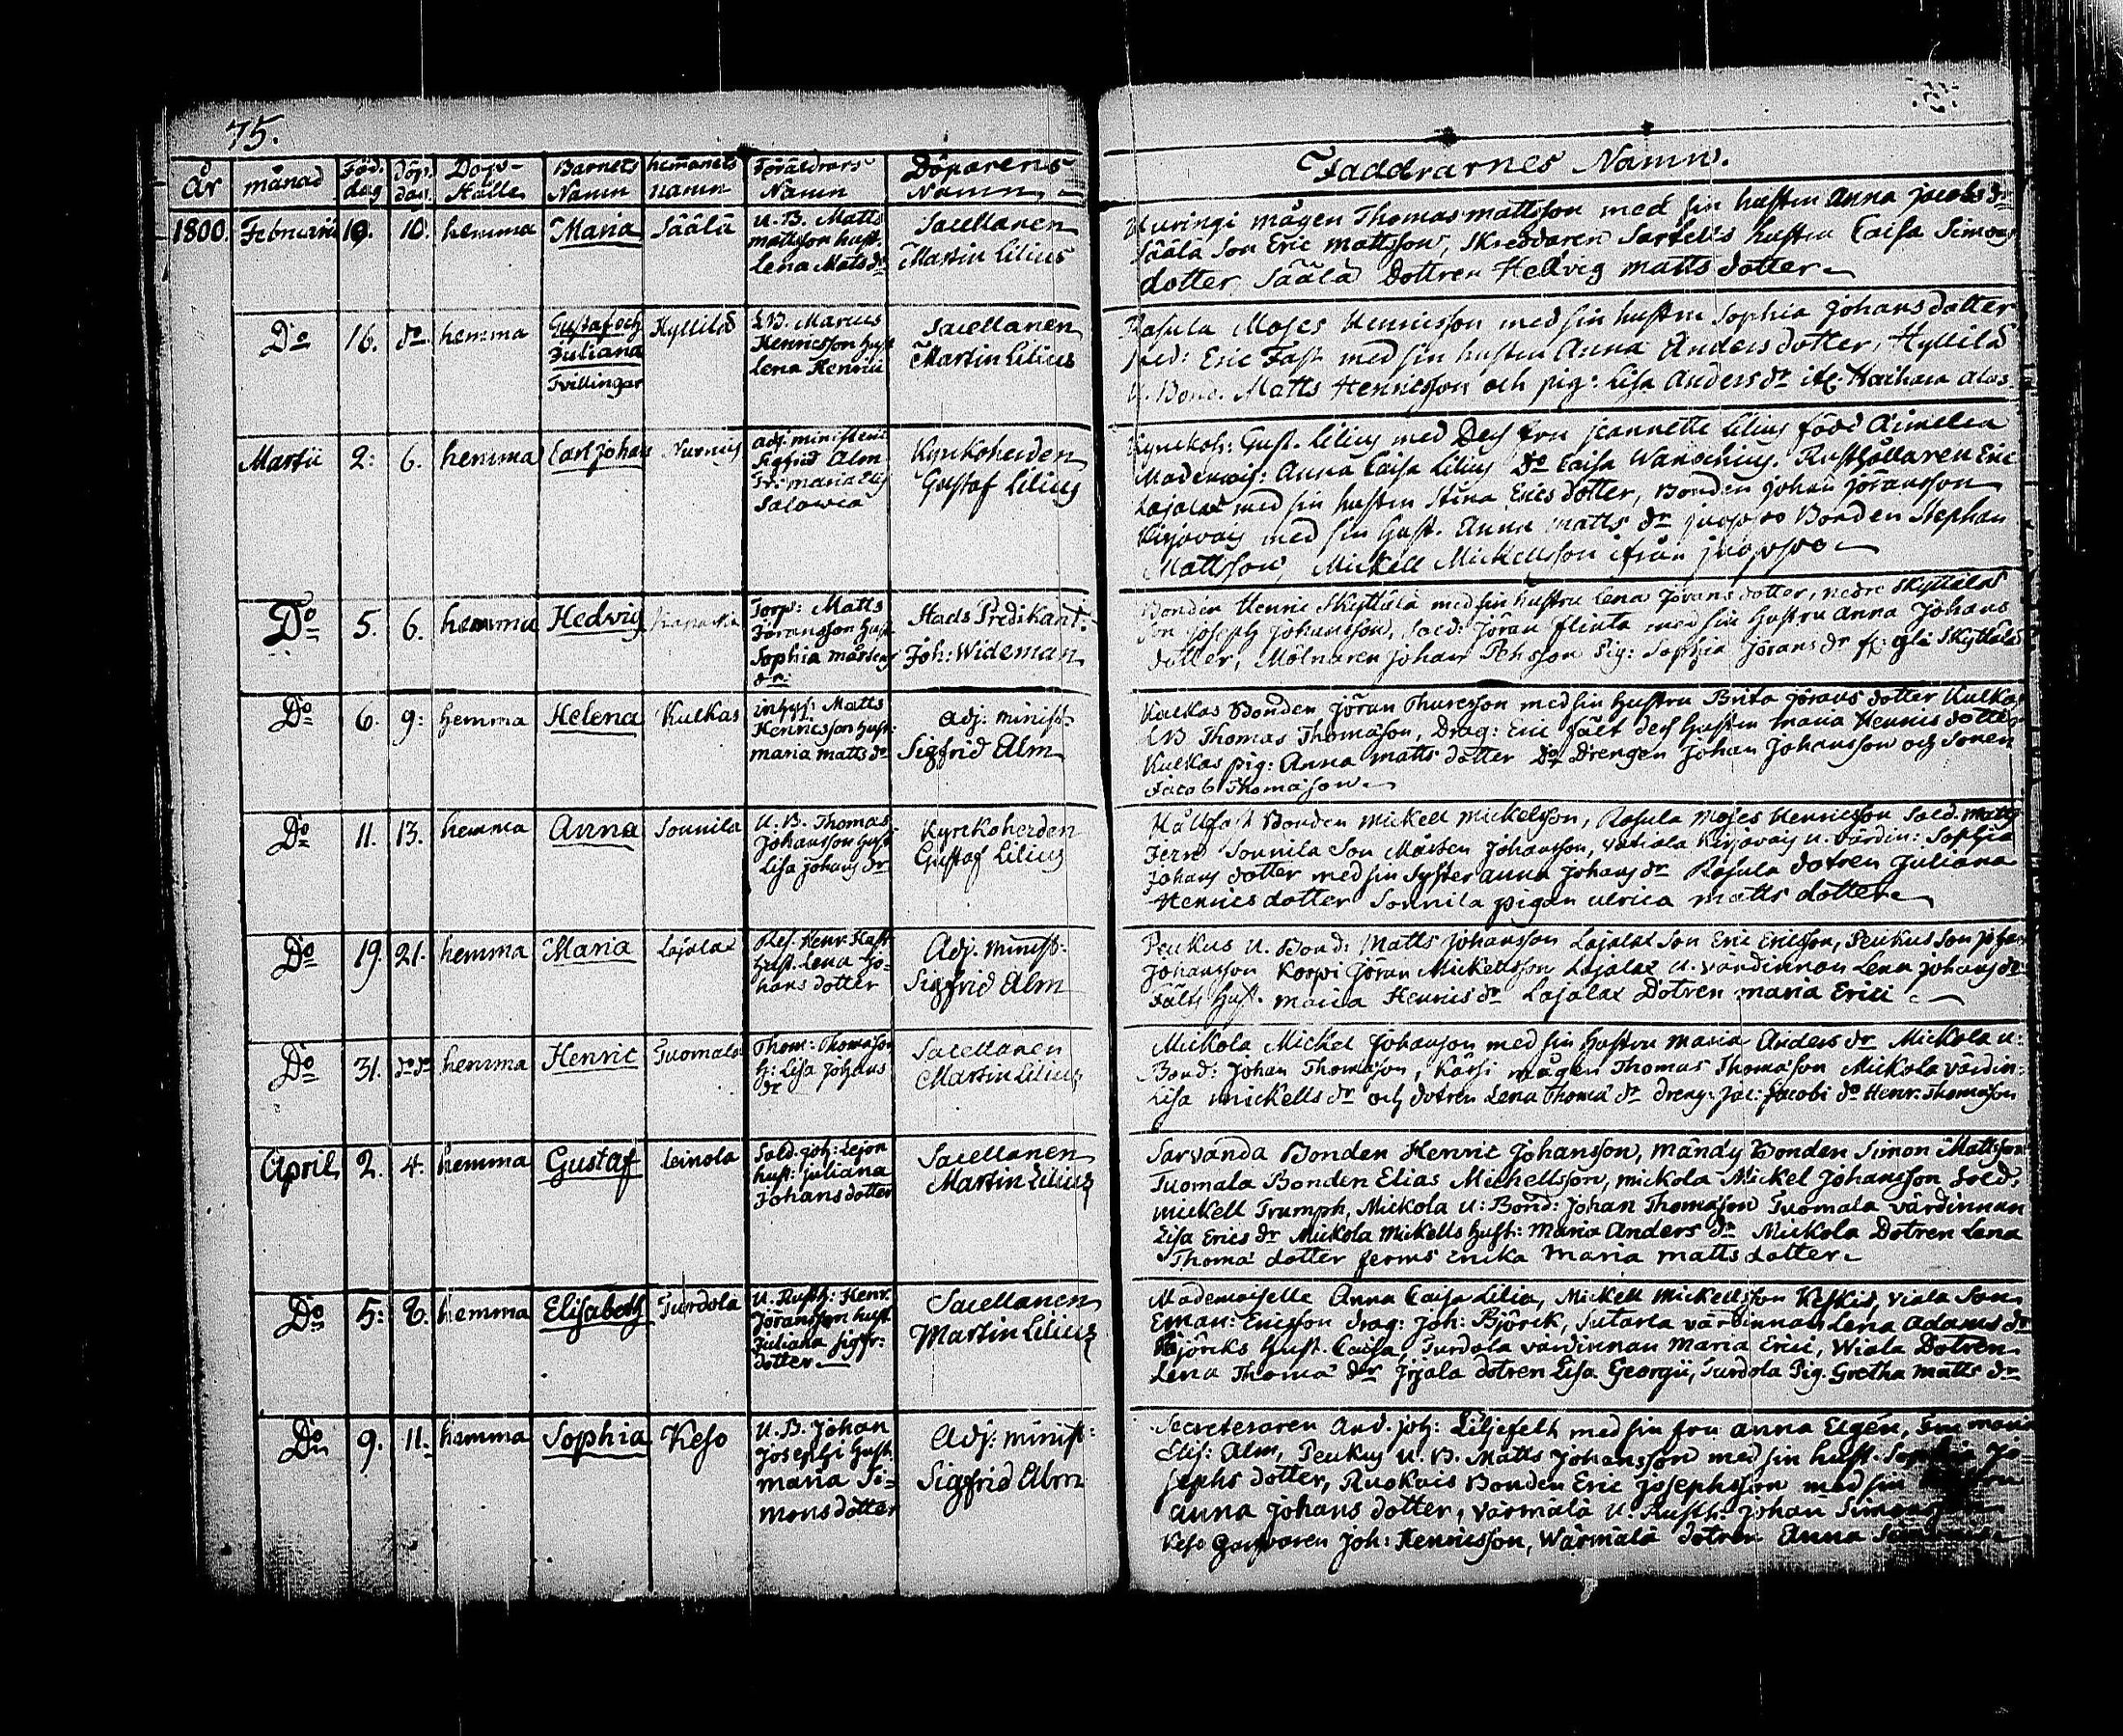 75.
År månad Föd. dag Döp. dag. Dops- Ställe Barnets Namn hemanets namn Föräldrars Namn Döparens Namn
Faddrarnes Namn.
1800. Februarii 10. 10. hemma Maria Säälä
U. B. Matts
mattsson hust.
Lena Mats dr
Sacellanen
Martin Lilius
mågen Thomas mattsson med sin hustru Anna jacobs dr
Säälä Son Eric mattsson, Skreddaren hustru Caisa Simons
dotter Säälä Dottren Hedvig matts dotter
Do 16. do hemma
Gustaf och
Juliana
Tvillingar
Hyllilä
L B. Marcus
Henricsson hust
Lena Henrici
Sacellanen
Martin Lilius
Rasula Moses Henricsson med sin hustru Sophia Johans dotter
Eric Fast med sin hustru Anna Anders dotter, Hyllilä
Bond. Matts Henricsson och pig: Lisa Anders dr
Martii 2: 6. hemma Carl Johan Nurmis
adj. ministerii
Sigfrid Alm
Fr: maria Elis
Kyrkoherden
Gustaf Lilius
Kyrckoh: Gust. Lilius med Des fru jeannette Lilius född Aimelea
Mademois: Anna Caisa Lilius Do Caisa Wanochius. Rusthållaren Eric
Lajalax med sin hustru Stina Erics dotter, Bonden Johan Jöransson
Kirjavais med sin hust. Anna matts dr Bonden Stephan
Mattsson, Mickell Mickellsson ifrån
Do 5. 6. hemma Hedvig
Torp: Matts
Jöransson hust
Sophia mårtens
dr.
Stads Predikant.
Joh: Wideman
Bonden Henric Skyttälä med sin hustru Lena Jörans dotter, nedre Skyttäläs
Son Joseph Johansson, Sold: Jöran Flinta med sin hustru Anna Johans
dotter, Mölnaren Johan Pig: Sophia Jörans dr
Do 6. 9: hemma Helena Kulkas
inhys: Matts
Henricsson hust:
maria matts dr
adj: minist.
Sigfrid Alm
Kulkas Bonden Jöran Thuresson med sin hustru Brita Jörans dotter Kulkas
L B Thomas Thomasson, Drag: Eric fält des hustru maria Henrics dotter
Kulkas pig: Anna matts dotter Do Drengen Johan Johansson och Sonen
Jacob Thomasson
Do 11. 13. hemma Anna Sounila
U. B. Thomas
Johansson hust
Lisa Johans dr
Kyrkoherden
Gustaf Lilius
Hållfast Bonden mickell mickelsson, Rasula Moses Henricsson Sold. matts
Jern Sounila Son Mårten Johansson, Kirjavais u. värdin: Sophia
Johans dotter med sin Syster anna Johans dr Rasula dotren Juliana
Henrics dotter Sounila pigan ulrica matts dotter
Do 19. 21. hemma Maria Lajalax
Res. Henr. Hast
hust. Lena Jo-
hans dotter
Adj. minist:
Sigfrid Alm
Peukus U. Bond: Matts Johansson Lajalax Son Eric Ericsson, Peukus Son Johan
Johansson Korpi Jöran Mickellsson Lajalax u. värdinnan Lena Johans dr
Fälts hust. maria Henrics dr Lajalax Dotren maria Erici
Do 31. do do hemma Henric Tuomala
Thom: Thomasson
h: Lisa Johans
dr
Sacellanen
Martin Lilius
Mickola Mickel Johansson med sin hustru maria Anders dr Mickola u.
Bond: Johan Thomasson, Kärsi mågen Thomas Thomasson Mickola värdin:
Lisa mickells dr och dotren Lena Thoma dr dreng: Jac: Jacobi do Henr: Thomasson
April 2. 4. hemma Gustaf Leinola
Sold. joh: Lejon
hust: juliana
Johans dotter
Sacellanen
Martin Lilius
Sarvanda Bonden Henric Johansson, mändy Bonden Simon Mattsson
Tuomala Bonden Elias Michellsson, mickola Mickel Johansson Sold.
mickell Trumph, Mickola U: Bond: Johan Thomasson Tuomala värdinnan
Lisa Erics dr Mickola Mickells hust: Maria Anders dr Mickola Dotren Lena
Thoma dotter ferms enka Maria matts dotter.
Do 5: 8. hemma Elisabeth Turdola
U. Rusth: Henr.
Jöransson hust
Juliana Sigfr:
dotter
Sacellanen
Martin Lilius
Mademoiselle Anna Caisa Lilia, Mickell Mickellsson Keskis, Viala Son
Eman: Ericsson drag: Joh: Björik, Sutarla värdinnan Lena Adams dr
Björiks hust. Caisa, Turdola värdinnan Maria Erici, Wiala Dotren
Lena Thoma dr Jrjala dotren Lisa Georgii, Turdola Pig. Gretha matts dr
Do 9. 11. hemma Sophia Keso
U. B. Johan
Josephi hust
maria Si-
mons dotter
Adj: minist:
Sigfrid Alm
Secreteraren And. joh: Liljefelt med sin fru anna Elgén, Fru maria
Elis: Alm, Peukus U. B. Matts Johansson med sin hust. Sophia Jo
sephs dotter, Ruokais Bonden Eric Josephsson med sin
anna Johans dotter, Värmälä U. Rusth: Johan
Keso Joh: Henricsson, Wärmälä dotren Anna